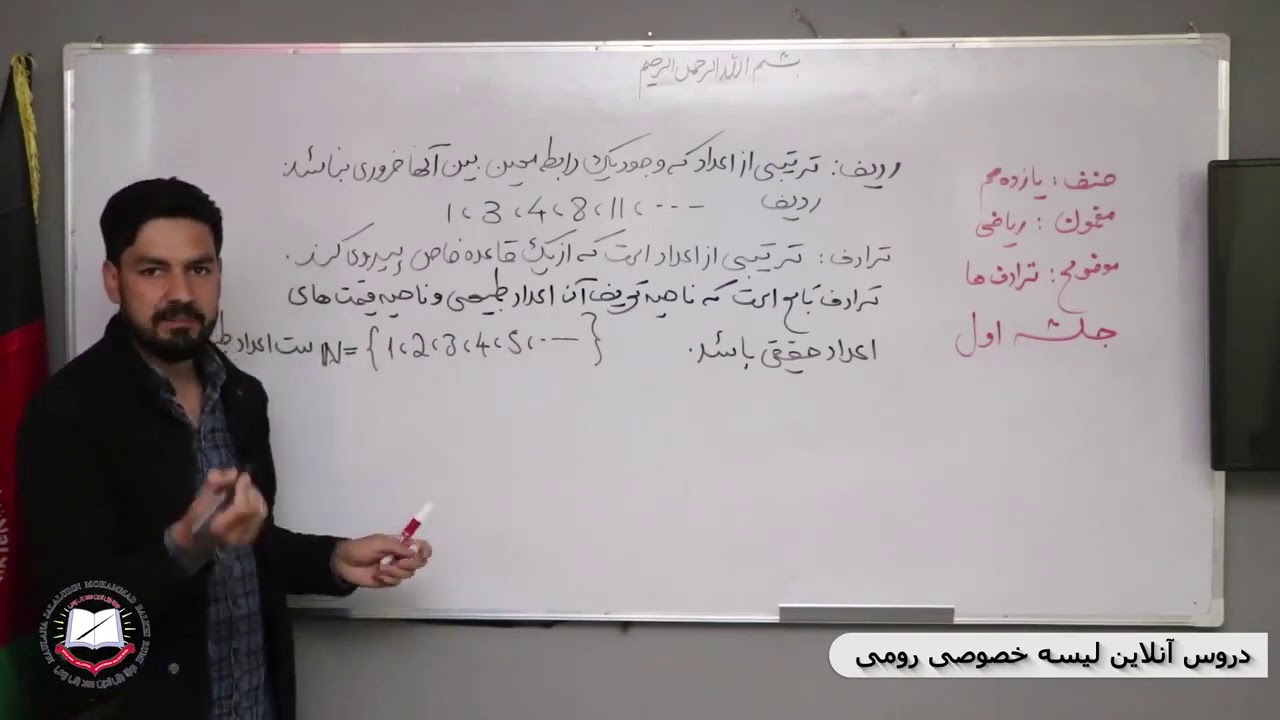 بسم الله الرحمن الرحیم
صنف: یازدهم
مضمون: ریاضی
موضوع: ترادف ها
جلسه اول
ردیف: ترتیبی از اعداد که وجود یک رابطه معین بین آنها ضروری نباشد.
ردیف 1، 3، 4، 8، 11، ...
ترادف: ترتیبی از اعداد است که از یک قاعده خاص پیروی کند.
ترادف تابع است که ناحیه تعریف آن اعداد طبیعی و ناحیه قیمت های
اعداد حقیقی باشد. IN = {1، 2، 3، 4، 5، ...} ست اعداد
MAULANA JALALUDIN MOHAMMAD BALKHI RUMI
دروس آنلاین لیسه خصوصی رومی